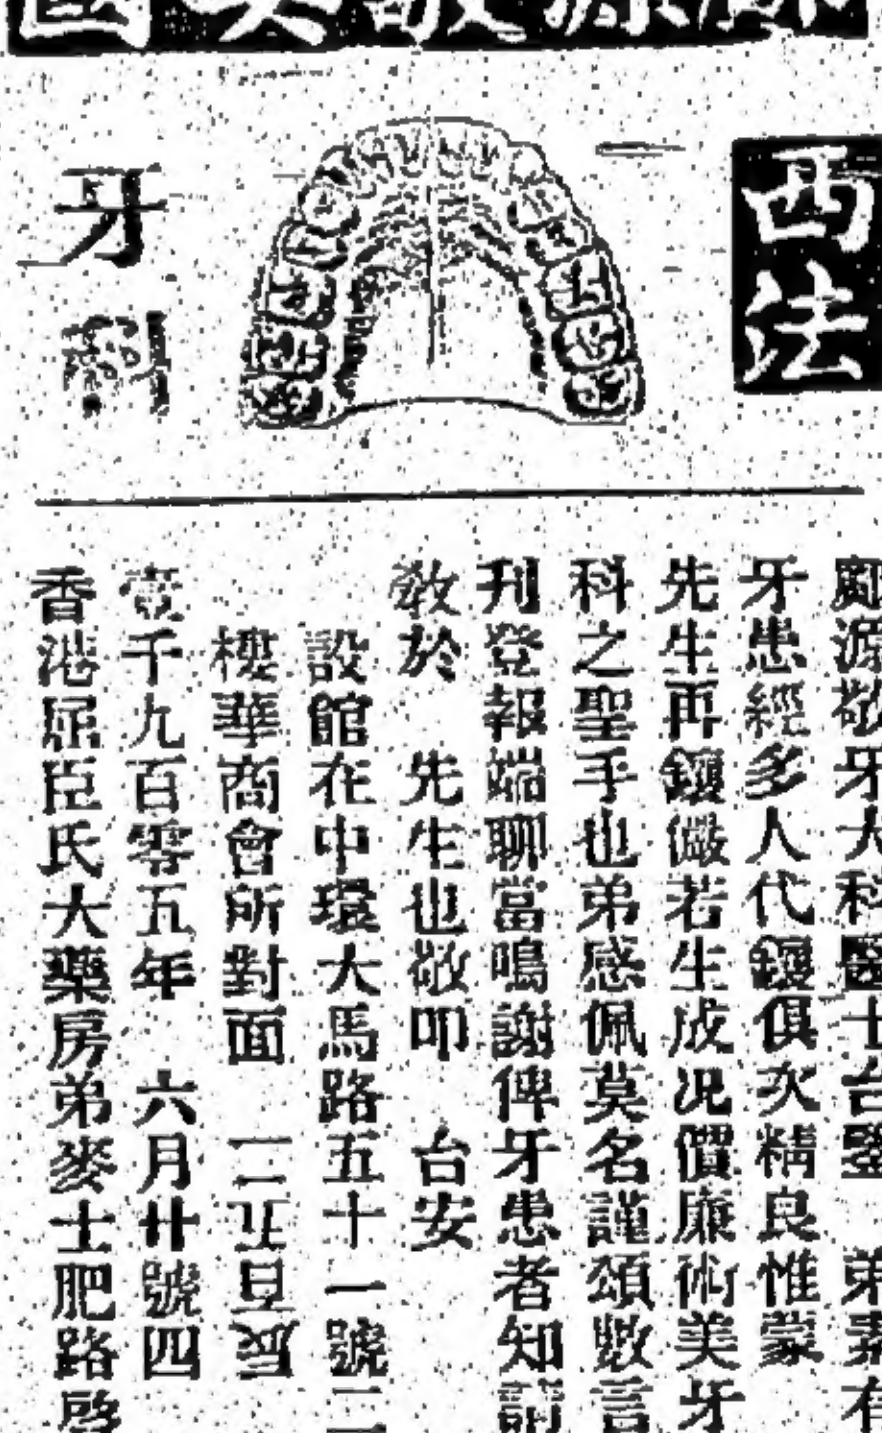 國
西法
牙科
源敬牙大科醫士台鑒 弟素有
牙患經多人代鑲俱欠精良惟蒙
先生再鑲儼若生成况價廉術美牙
科之聖手也弟感佩莫名謹頌數言
刊登報端聊當鳴謝俾牙患者知請
敎於 先生也敬叩 台安
設館在中環大馬路五十一號二
樓華商會所對面
壹千九百零五年 六月廿號四
香港屈臣氏大藥房弟麥士肥路啓